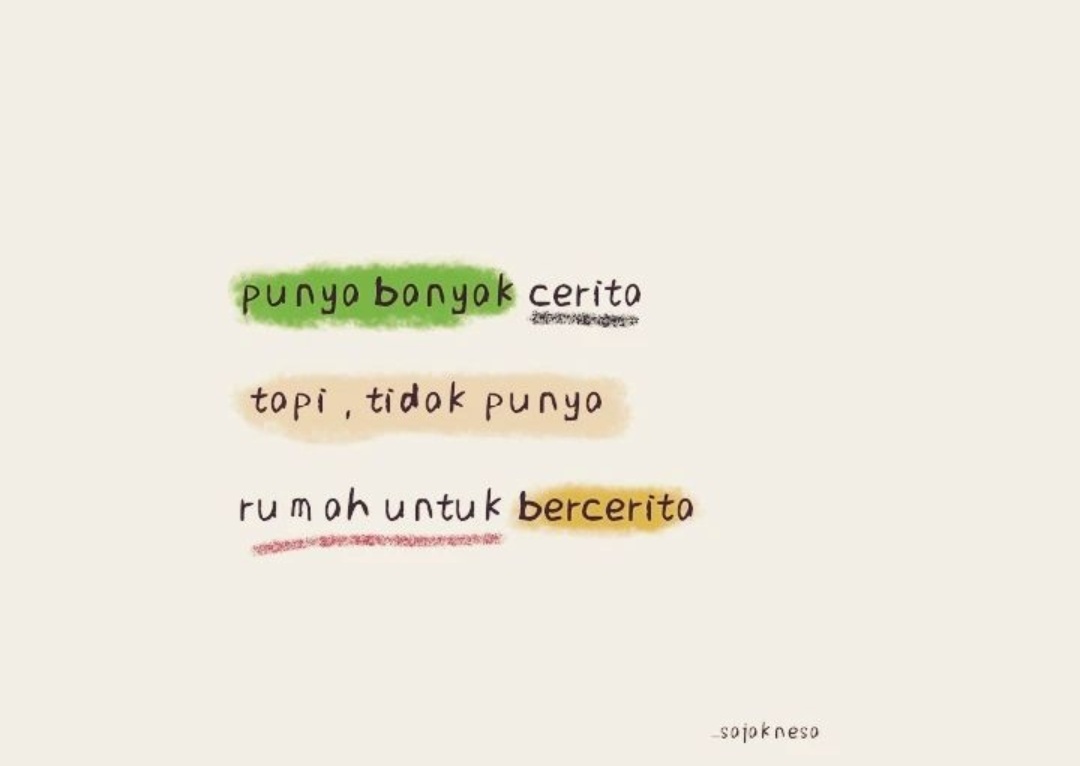 punya banyak cerita
tapi , tidak punya
rumah untuk bercerita
_sajaknesa